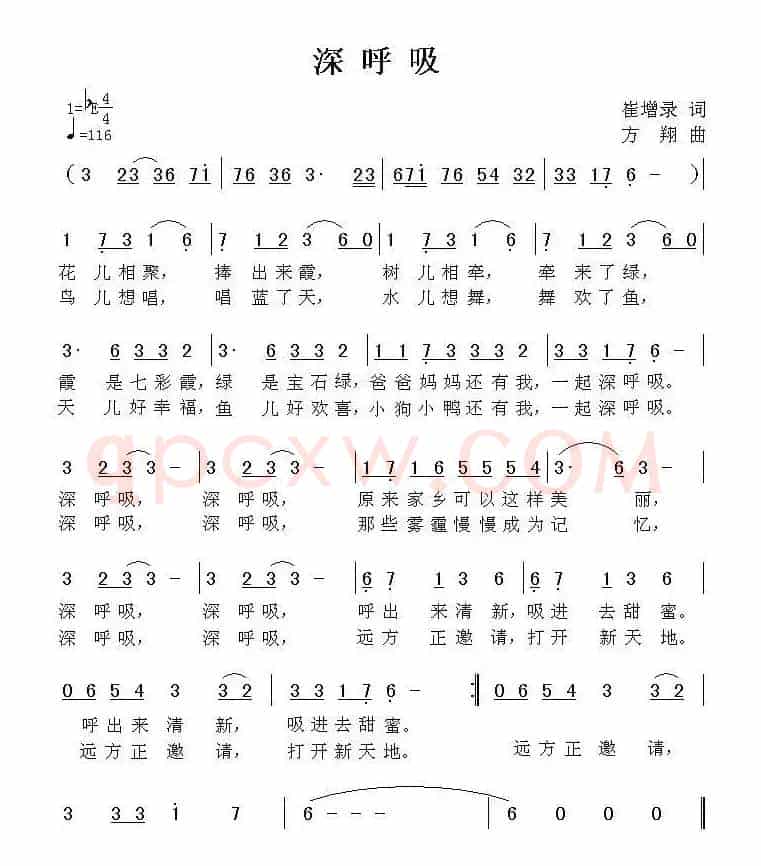 深呼吸
1=♭E 4/4
♩=116
崔增录 词
方 翔 曲
(3 23 36 7i|76 36 3· 23|67i 76 54 32|33 17 6 -)|
1 7 3 1 6|7 1 2 3 6 0|1 7 3 3 2|7 1 2 3 6 0|
花 儿 相 聚, 捧 出 来 霞, 树 儿 相 牵, 牵 来 了 绿,
鸟 儿 想 唱, 唱 蓝 了 天, 水 儿 想 舞, 舞 欢 了 鱼,
3· 6 3 3 2|3· 6 3 3 2|1 1 7 3 3 2|3 3 1 7 6 -|
霞 是 七 彩 霞, 绿 是 宝 石 绿, 爸 爸 妈 妈 还 有 我, 一 起 深 呼 吸。
天 儿 好 幸 福, 鱼 儿 好 欢 喜, 小 狗 小 鸭 还 有 我, 一 起 深 呼 吸。
qpcxw.COM
3 2 3 3 -|3 2 3 3 -|1 7 1 6 5 5 5 4|3· 6 3 -|
深 呼 吸, 深 呼 吸, 原 来 家 乡 可 以 这 样 美 丽,
深 呼 吸, 深 呼 吸, 那 些 雾 霾 慢 慢 成 为 记 忆,
3 2 3 3 -|3 2 3 3 -|6 7 1 3 6|6 7 1 3 6|
深 呼 吸, 深 呼 吸, 呼 出 来 清 新, 吸 进 去 甜 蜜。
深 呼 吸, 深 呼 吸, 远 方 正 邀 请, 打 开 新 天 地。
0 6 5 4 3 3 2|3 3 1 7 6 -:|0 6 5 4 3 3 2|
呼 出 来 清 新, 吸 进 去 甜 蜜。
远 方 正 邀 请, 打 开 新 天 地。 远 方 正 邀 请,
3 3 3 i 7|6 - - -|6 0 0 0‖